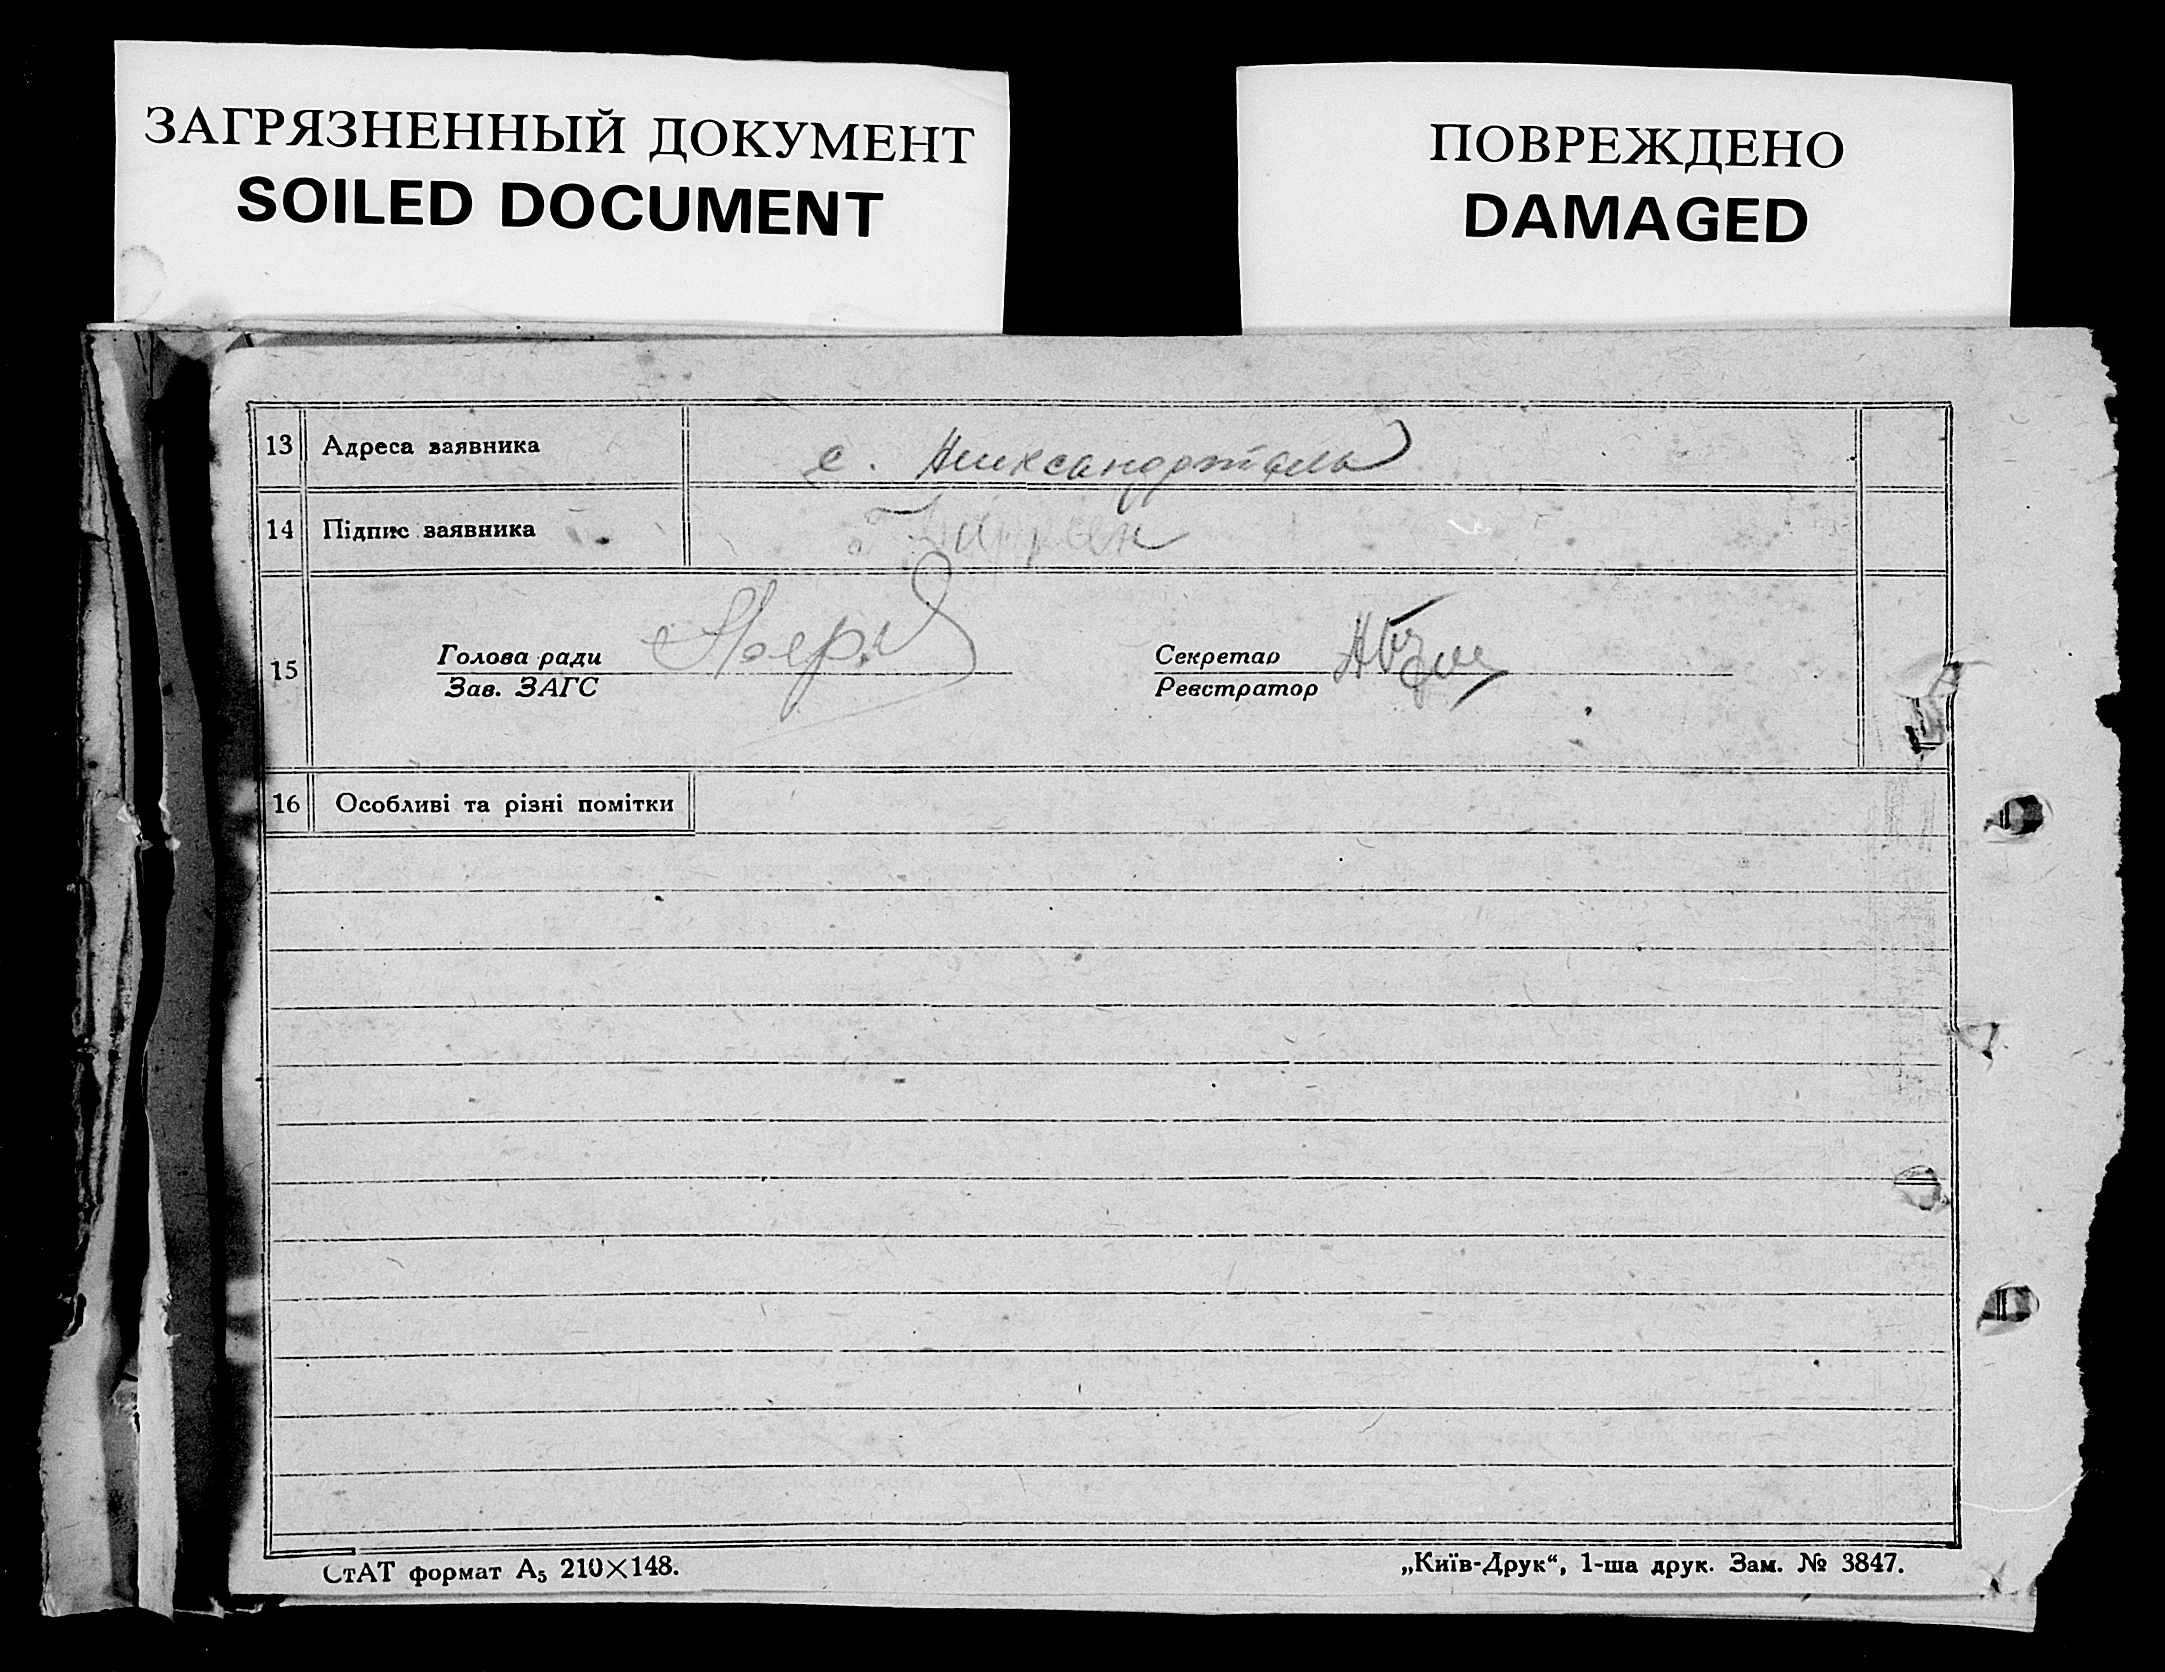 ЗАГРЯЗНЕННЫЙ ДОКУМЕНТ
SOILED DOCUMENT
ПОВРЕЖДЕНО
DAMAGED
13 Адреса заявника с.
14 Підпис заявника
15 Голова ради
Зав. ЗАГС
Секретар
Реєстратор
16 Особливі та різні помітки
СтАТ формат А₅ 210×148.
„Київ-Друк“, 1-ша друк. Зам. № 3847.